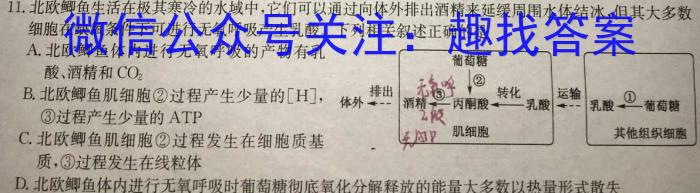 11.北欧鲫鱼生活在极其寒冷的水域中,它们可以通过向体外排出酒精来延缓周围水体结冰,但其大多数
细胞在缺氧条件下可进行无氧呼吸产生乳酸。下列相关叙述正确的是
微信公众号关注:趣找答案
A.北欧鲫鱼体内进行无氧呼吸的产物有乳
酸、酒精和CO2
B.北欧鲫鱼肌细胞②过程产生少量的[H],
③过程产生少量的ATP
C.北欧鲫鱼肌细胞②过程发生在细胞质基
质,③过程发生在线粒体
D.北欧鲫鱼体内进行无氧呼吸时葡萄糖彻底氧化分解释放的能量大多数以热量形式散失
葡萄糖
②
体外 排出 酒精 ③ 丙酮酸 转化 乳酸 运输 乳酸 ① 葡萄糖
肌细胞
其他组织细胞